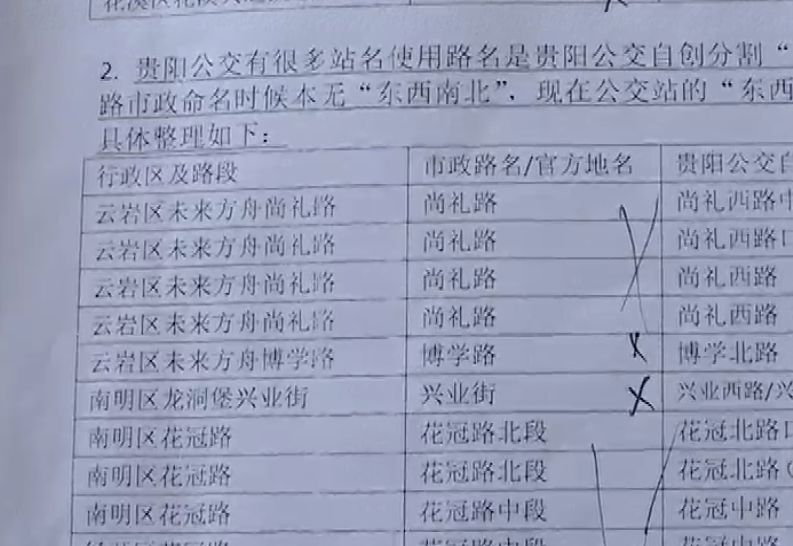 2. 贵阳公交有很多站名使用路名是贵阳公交自创分割“
路市政命名时候本无“东西南北”，现在公交站的“东西
具体整理如下：
行政区及路段 市政路名/官方地名 贵阳公交自
云岩区未来方舟尚礼路 尚礼路 尚礼西路中
云岩区未来方舟尚礼路 尚礼路 尚礼西路口
云岩区未来方舟尚礼路 尚礼路 尚礼西路
云岩区未来方舟尚礼路 尚礼路 尚礼西路
云岩区未来方舟博学路 博学路 博学北路
南明区龙洞堡兴业街 兴业街 兴业西路/兴
南明区花冠路 花冠路北段 花冠北路口
南明区花冠路 花冠路北段 花冠北路（
南明区花冠路 花冠路中段 花冠中路